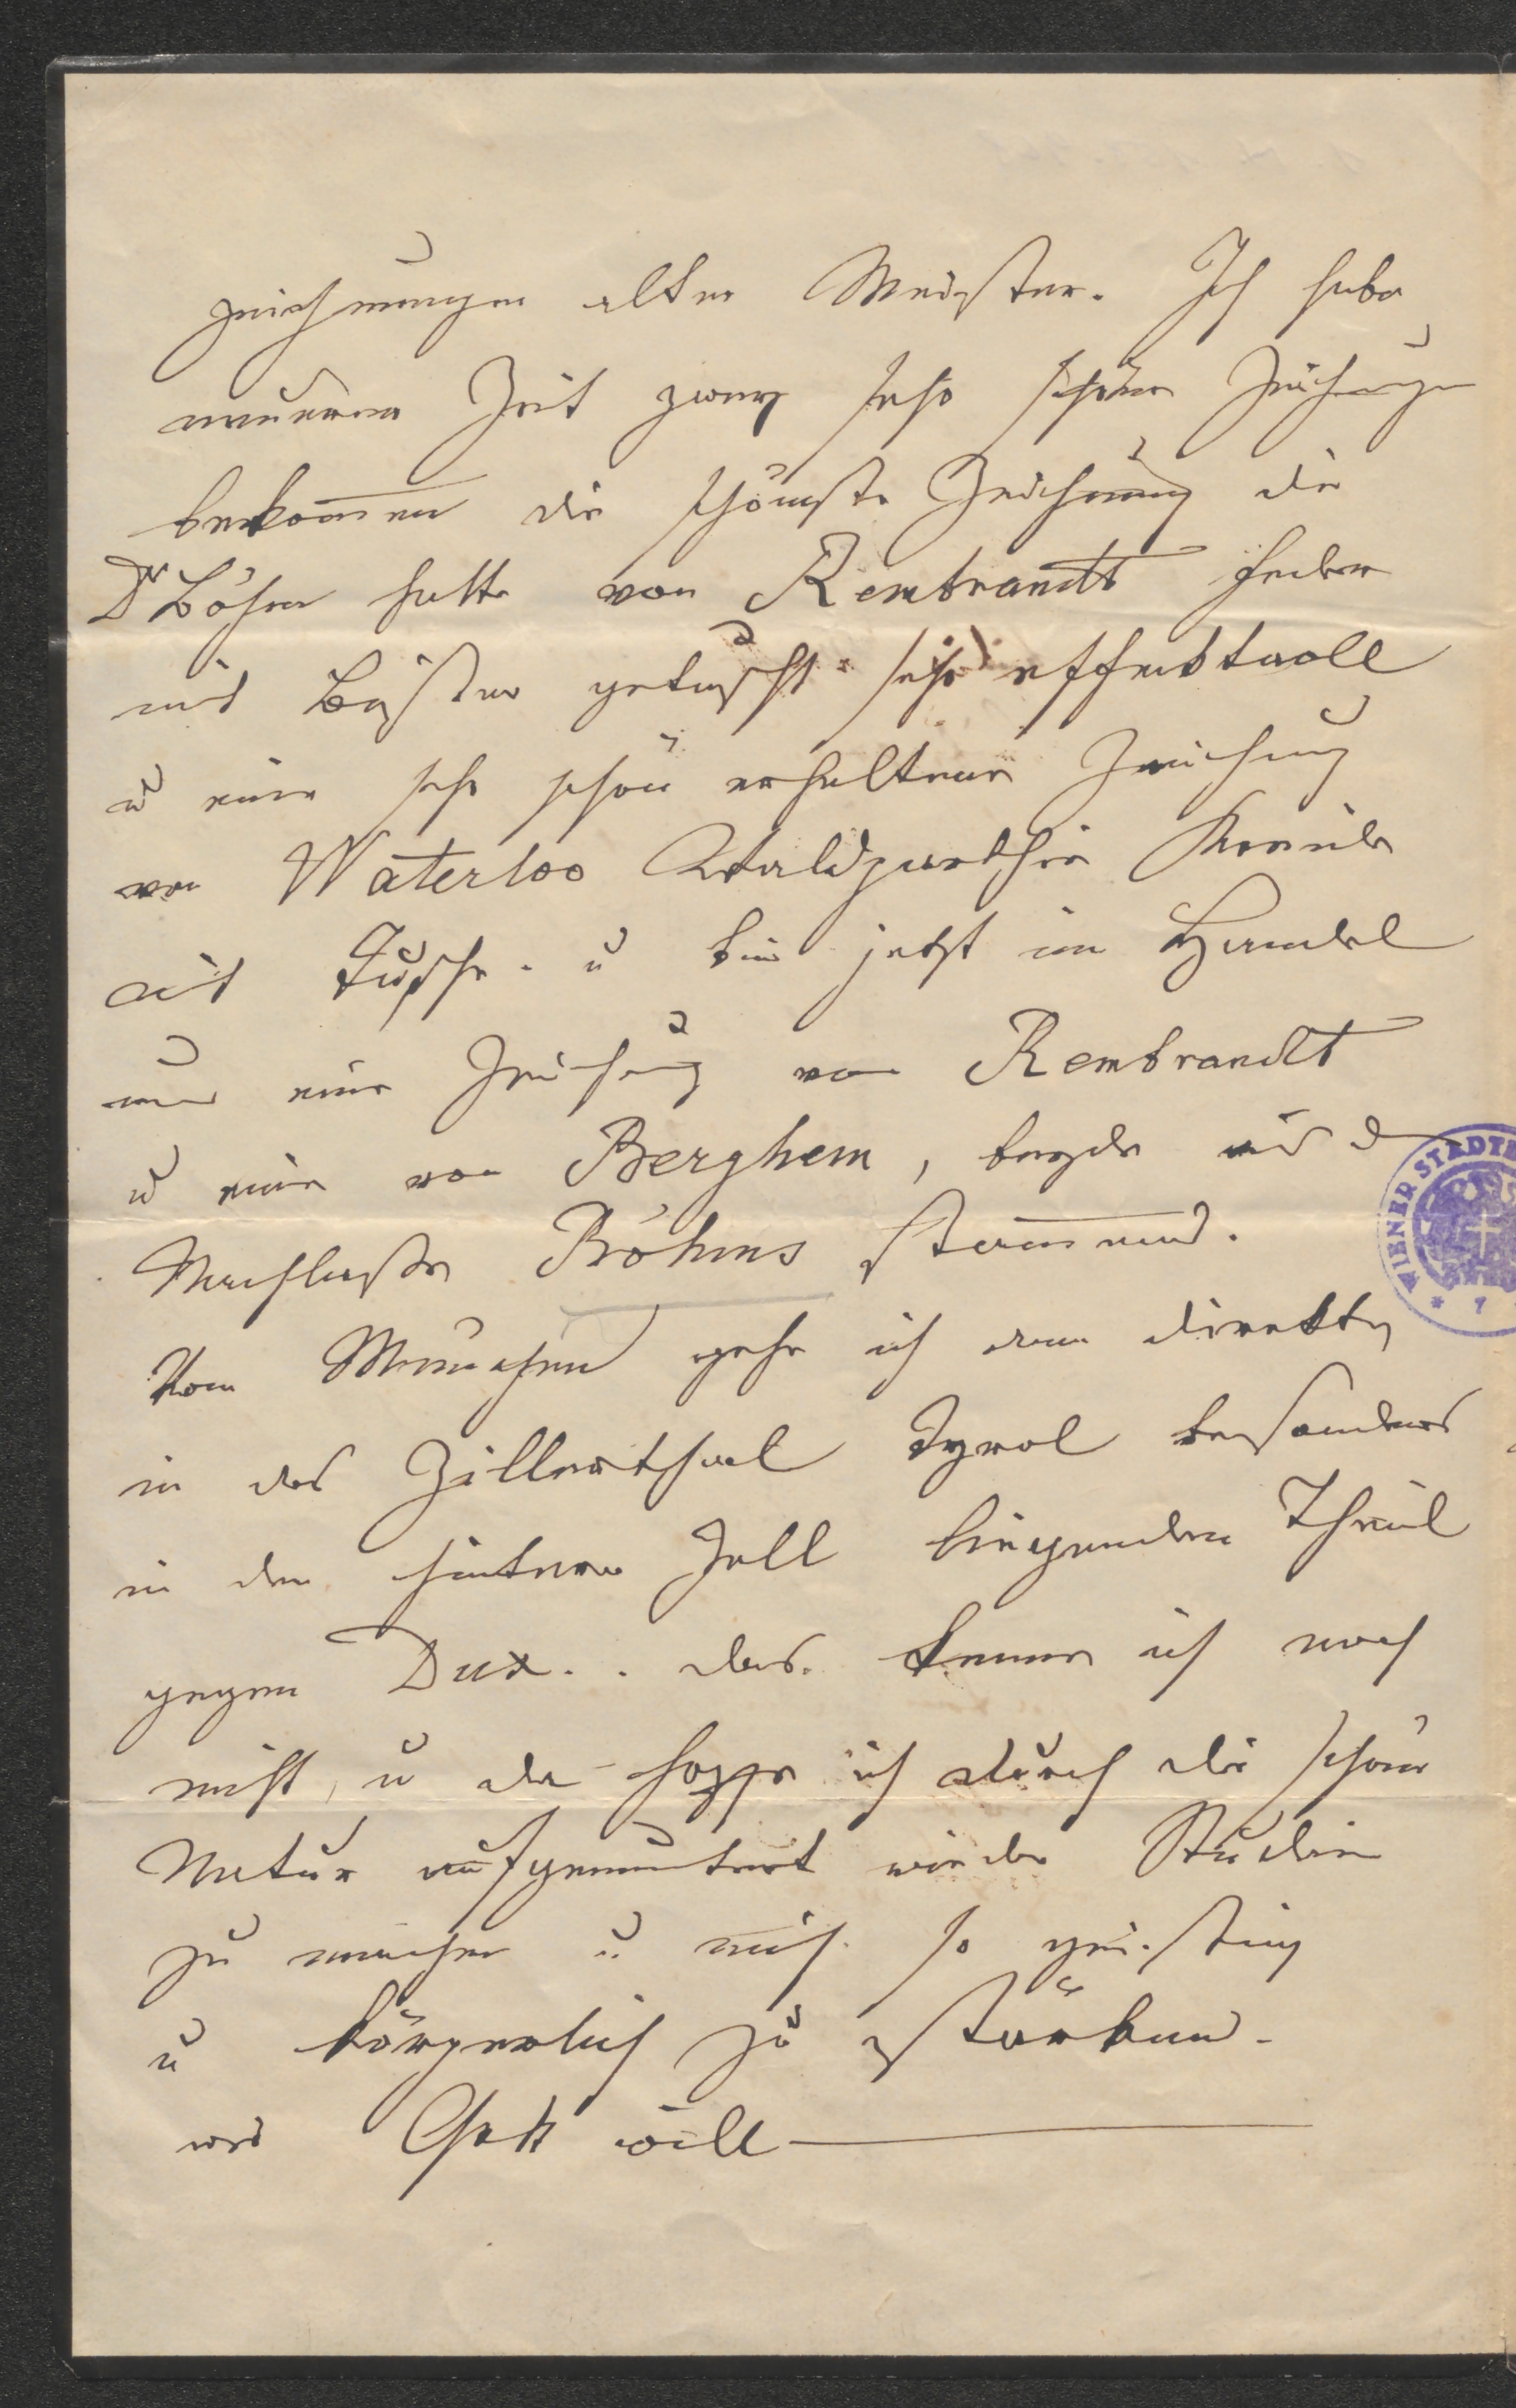 zeichnungen alter Meister. Ich habe
neuerer Zeit zwey sehr schöne Zeichnungen
bekommen die schönste Zeichnung die
Dr Böhm hatte von Rembrandt Feder
mit Bister getuscht sehr effektvoll
u eine sehr schön erhaltene Zeichnung
von Waterloo Waldparthie Kreide
mit Tusche. u bin jetzt im Handel
um eine Zeichnung von Rembrandt
u eine von Berghem, beyde aus d
Nachlasse Böhms stammend.
Von München gehe ich dann direkte
in das Zillerthal Tyrol besonders
in den hinter Zell liegenden Theil
gegen Dux.. das kenne ich noch
nicht, u da hoffe ich durch die schöne
Natur aufgemuntert wieder Studien
zu machen u mich so geistig
u körperlich zu stärken.
was Gott will
WIENER STADT